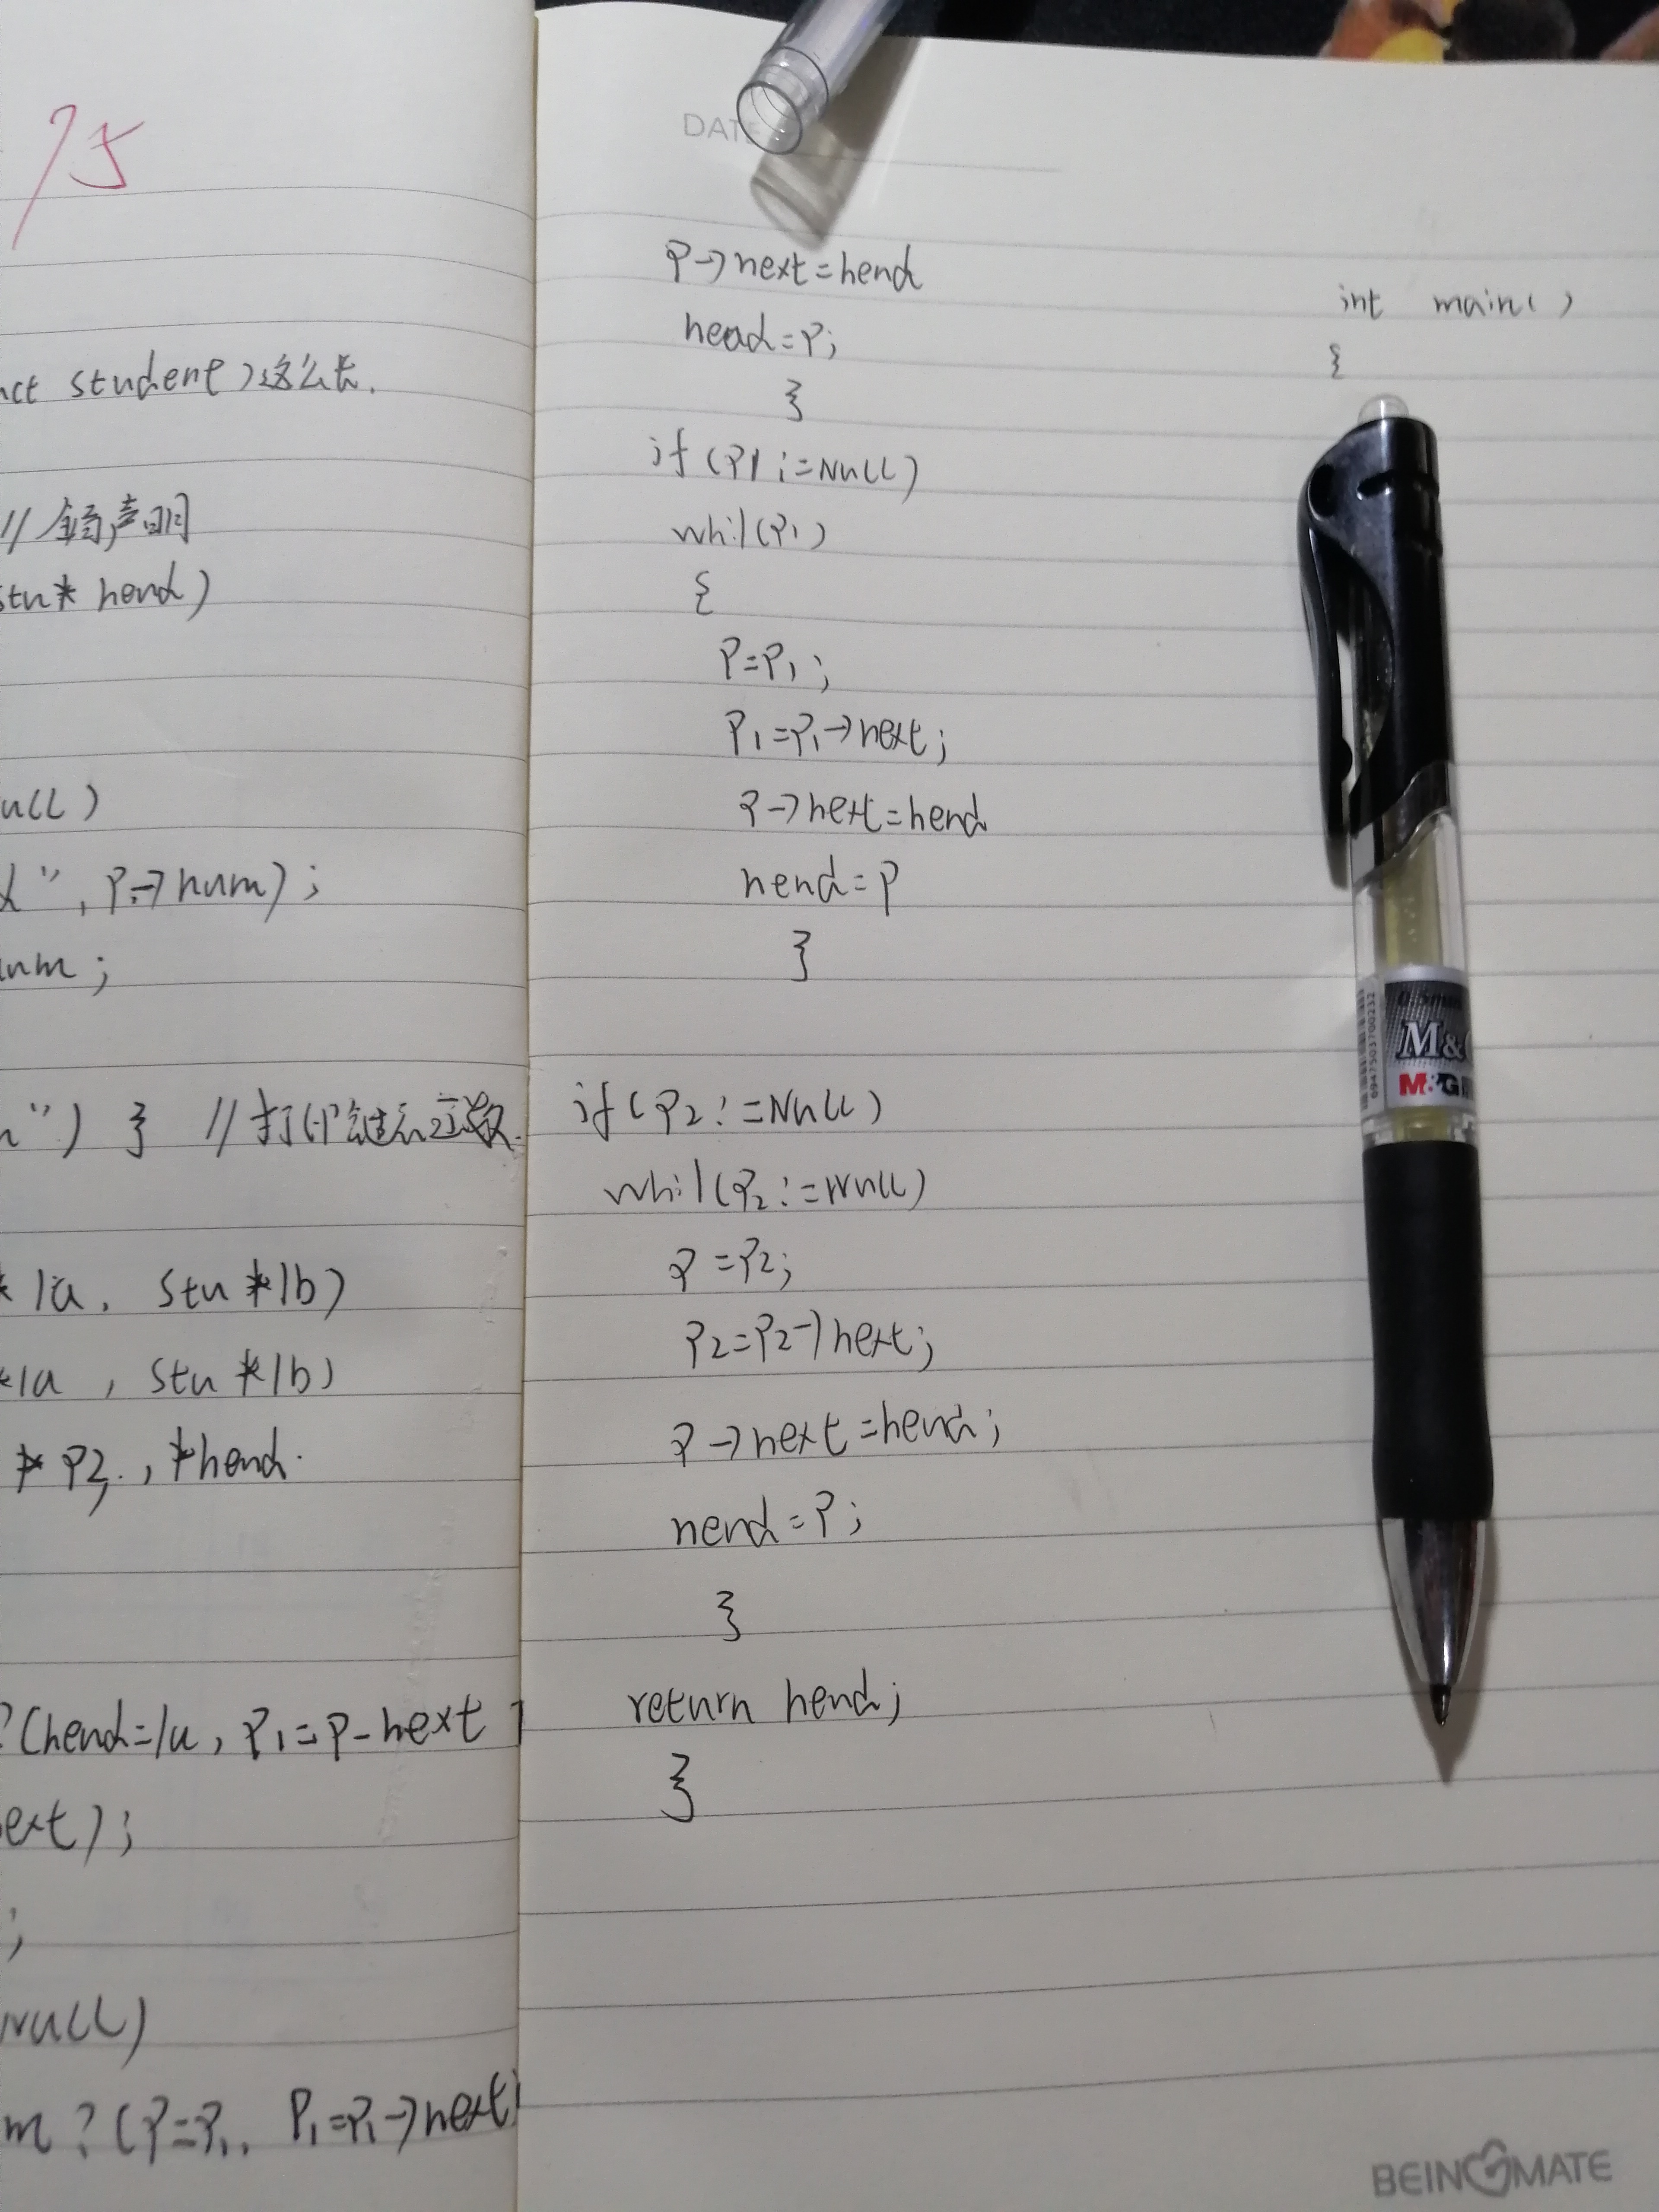 /5
nct student)这么长.
// 全局声明
stu* hend)
ull)
d", p->num);
num;
n") } //打印链表函数.
* la, stu *lb)
*la, stu *lb)
* P2, *hend.
?(hend=la, P1=p-next
ext);
;
Null)
m ? (P=P1, P1=P1->next)
DATE
P->next=hend
head=P;
}
if(P1;=Null)
whil(P1)
{
P=P1;
P1=P1->next;
P->next=hend
hend=P
}
if(P2!=Null)
whil(P2!=Null)
P=P2;
P2=P2->next;
P->next=hend;
hend=P;
}
return hend;
}
int main()
{
0.5mm
M&
M&G
6947503700232
BEINGMATE